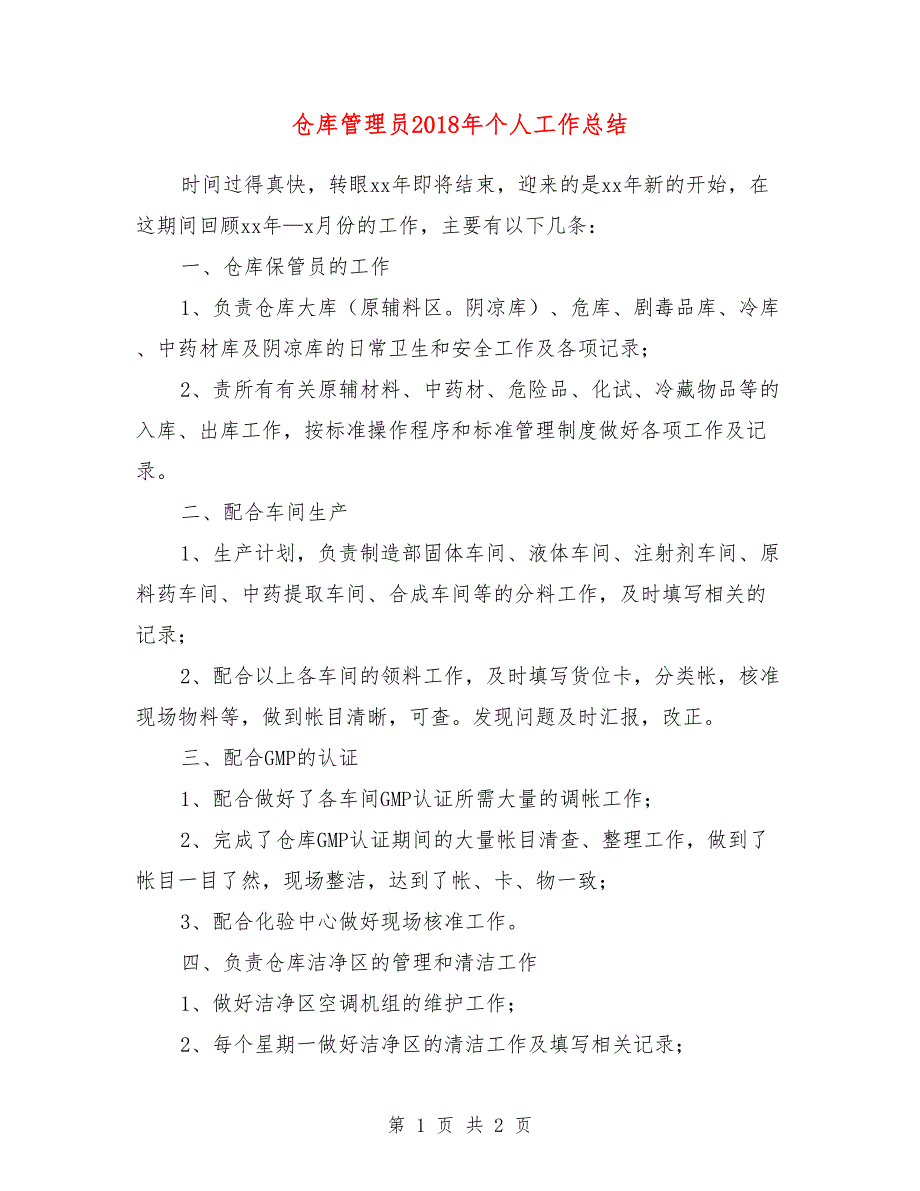 仓库管理员2018年个人工作总结
时间过得真快，转眼xx年即将结束，迎来的是xx年新的开始，在
这期间回顾xx年—x月份的工作，主要有以下几条：
一、仓库保管员的工作
1、负责仓库大库（原辅料区。阴凉库）、危库、剧毒品库、冷库
、中药材库及阴凉库的日常卫生和安全工作及各项记录；
2、责所有有关原辅材料、中药材、危险品、化试、冷藏物品等的
入库、出库工作，按标准操作程序和标准管理制度做好各项工作及记
录。
二、配合车间生产
1、生产计划，负责制造部固体车间、液体车间、注射剂车间、原
料药车间、中药提取车间、合成车间等的分料工作，及时填写相关的
记录；
2、配合以上各车间的领料工作，及时填写货位卡，分类帐，核准
现场物料等，做到帐目清晰，可查。发现问题及时汇报，改正。
三、配合GMP的认证
1、配合做好了各车间GMP认证所需大量的调帐工作；
2、完成了仓库GMP认证期间的大量帐目清查、整理工作，做到了
帐目一目了然，现场整洁，达到了帐、卡、物一致；
3、配合化验中心做好现场核准工作。
四、负责仓库洁净区的管理和清洁工作
1、做好洁净区空调机组的维护工作；
2、每个星期一做好洁净区的清洁工作及填写相关记录；
第 1 页 共 2 页